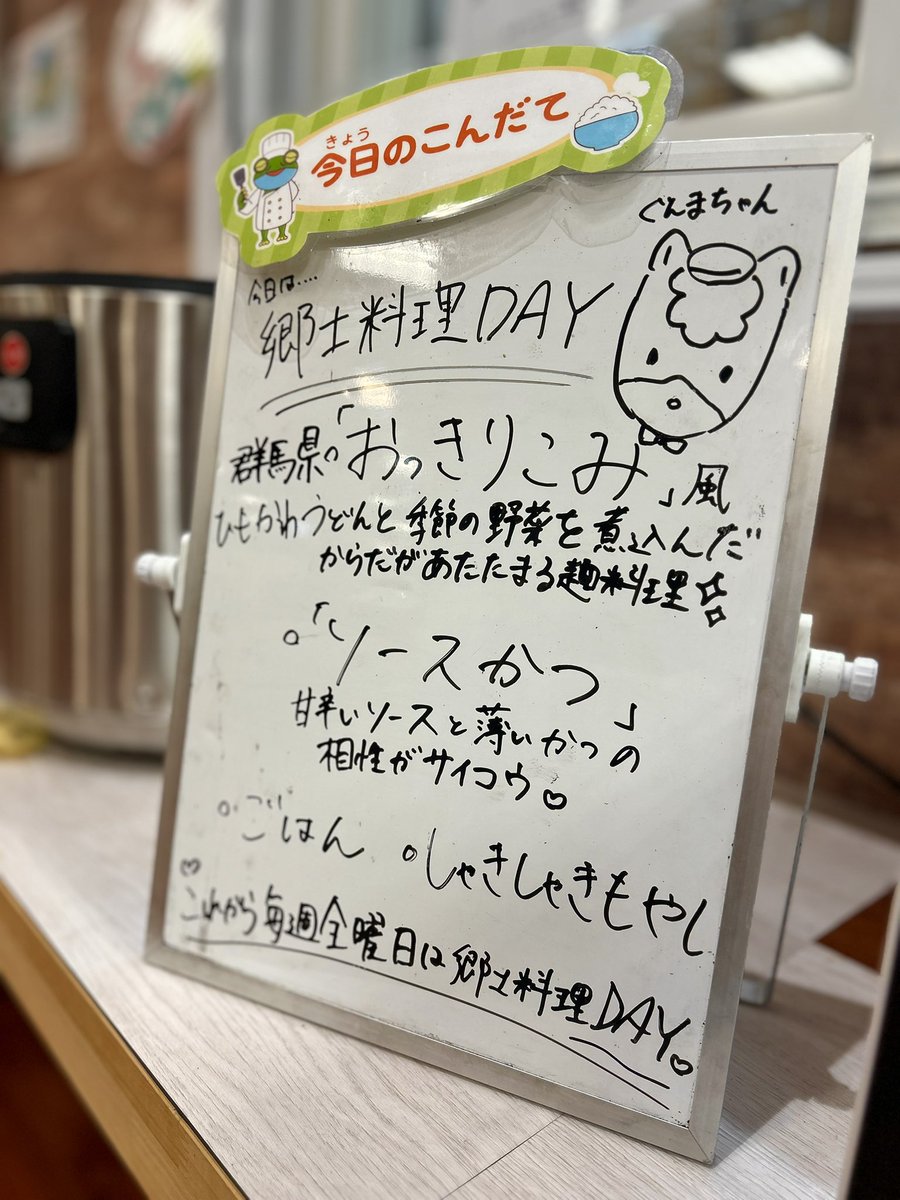 きょう
今日のこんだて
ぐんまちゃん
今日は....
郷土料理DAY
群馬県の「おっきりこみ」風
ひもかわうどんと季節の野菜を煮込んだ
からだがあたたまる麺料理
。「ソースかつ」
甘辛いソースと薄いかつの
相性がサイコウ♡
。ごはん 。しゃきしゃきもやし
♡これから毎週金曜日は郷土料理DAY♡